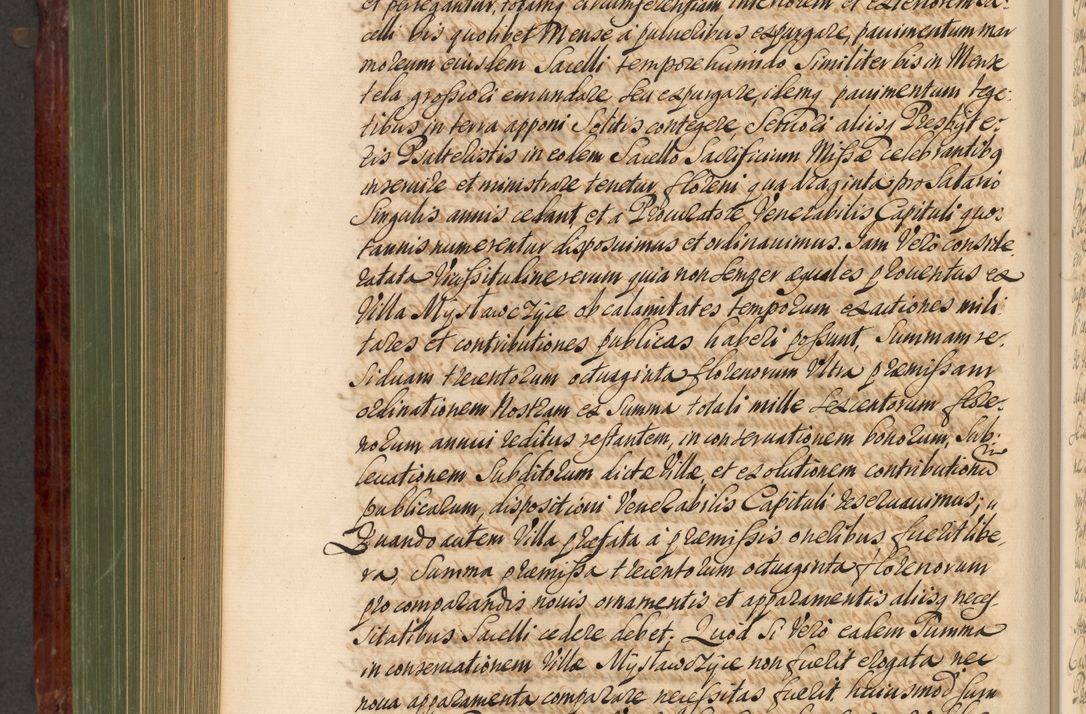 et peragantur, totamq circumferentiam interiorem et exteriorem Sa:
celli bis quolibet Mense à pulueribus expurgare, pauimentum mar
moreum eiusdem Sacelli tempore humido Similiter bis in Mense
tela grossiori emundare seu expurgare, idemq pauimentum tege:
tibus in terra apponi Solitis contegere, Seniori alijsq Presbyte:
ris Psalteristis in eodem Sacello Sacrificium Missæ celebrantibq
inseruire et ministrare tenetur, floreni quadraginta pro Salario
Singulis annis cedant, et à Procuratore Venerabilis Capituli quo:
tannis numerentur disposuimus et ordinauimus. Jam Verò conside
ratata Vicissitudine rerum quia non semper æquales prouentus ex
Villa Mysławczyce ob calamitates temporum exactiones mili
tares et contributiones publicas haberi possunt, Summam re:
Siduam trecentorum octuaginta florenorum Vltra præmissam
ordinationem Nostram ex Summa totali mille sexcentorum flore:
norum annui reditus restantem, in conseruationem bonorum, Sub:
leuationem Subditorum dictæ Villæ, et exolutionem contributionũ
publicarum, dispositioni Venerabilis Capituli reseruauimus;
Quando autem Villa præfata à præmissis oneribus fuerit libe:
ra, Summa præmissa trecentorum octuaginta florenorum
pro comparandis nouis ornamentis et apparamentis alijsq neces
sitatibus Sacelli cedere debet. Quod Si Verò eadem Summa
in conseruationem Villæ Mysławczyce non fuerit erogata nec
noua apparamenta comparare necessitas fuerit, huiusmodi Sum